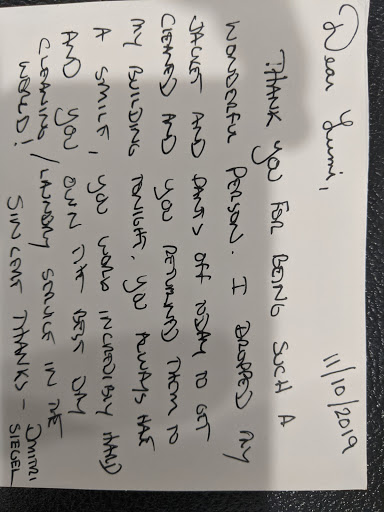 11/10/2019
Dear Yumi,
THANK YOU FOR BEING SUCH A
WONDERFUL PERSON. I DROPPED MY
JACKET AND PANTS OFF TODAY TO GET
CLEANED AND YOU RETURNED THEM TO
MY BUILDING TONIGHT. YOU ALWAYS HAVE
A SMILE, YOU WORK INCREDIBLY HARD
AND YOU OWN THE BEST DRY
CLEANING/LAUNDRY SERVICE IN THE
WORLD!
SINCERE THANKS - DMITRI
SIEGEL